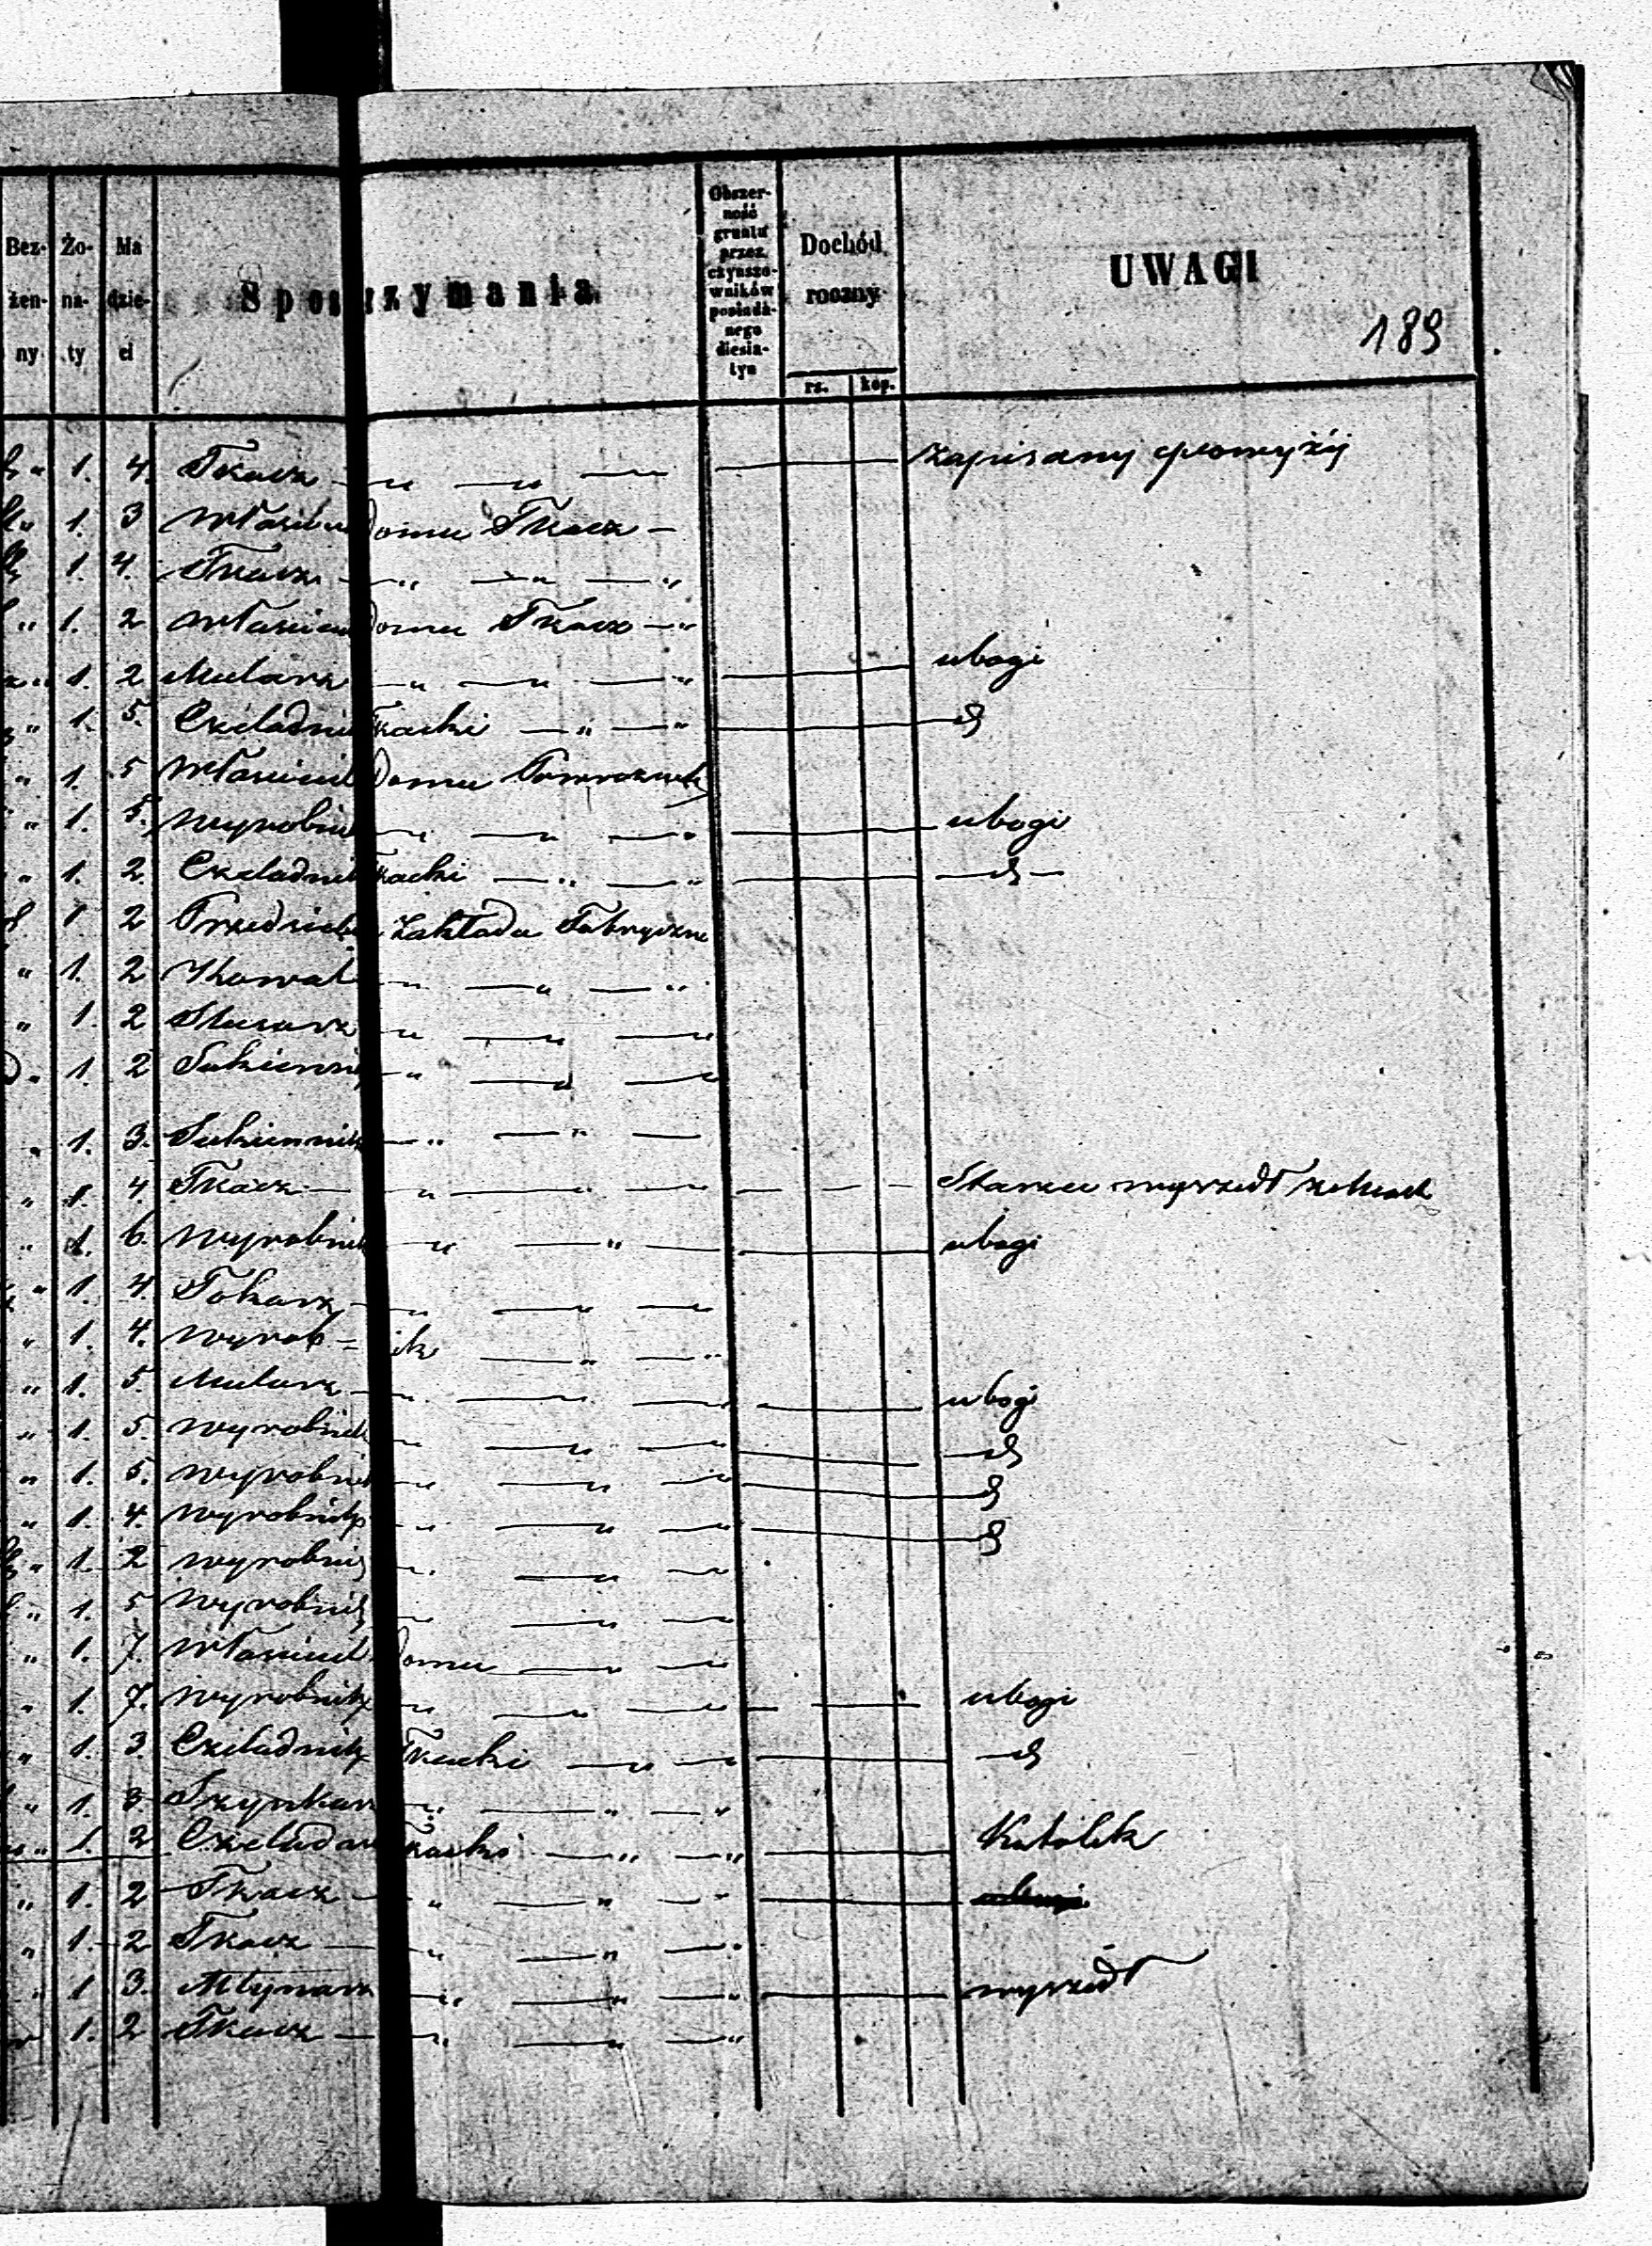 Bez- żen- ny
Żo- na- ty
Ma dzie- ci
Spos rzymania
Obszer- ność gruntu przez czynszo- wników posiada- nego diesia- tyn
Dochód roczny
rs. kop.
UWAGI
189
1. 4. Tkacz — " — " — zapisany powyżéj
1. 3 Właścic Domu Tkacz —
1. 4. Tkacz — " — " — "
1. 2 Właścic Domu Tkacz — "
1. 2 Mularz — " — " — " ubogi
1. 5. Czeladni Tkacki — " — "
1. 5 Właścicil Domu
1. 5. Wyrobni — " — " — " ubogi
1. 2. Czeladnik Tkacki — " — "
1. 2 Przedsieb Zakładu Fabryczne
1. 2 Kowal — " — " — "
1. 2 Slusarz — " — " — "
1. 2 Sukienni — " — " — "
1. 3. Sukiennik — " — " —
1. 4. Tkacz — " — " — wyszedł
1. 6. Wyrobnik — " — " — ubogi
1. 4. Tokarz — " — " — "
1. 4. Wyrob - ik — " — "
1. 5. Mularz — " — " — " ubogi
1. 5. Wyrobnik — " — " — "
1. 5. Wyrobni — " — " — "
1. 4. Wyrobnik — " — " — "
1. 2 Wyrobni — " — " — "
1. 5 Wyrobnik — " — " — "
1. 7. Właścicil Domu — " — "
1. 7. Wyrobnik — " — " — " ubogi
1. 3. Czeladnik Tkacki — " — "
1. 3. Szynkar — " — " — "
1. 2 Czeladni Tkacki — " — " Katolik
1. 2 Tkacz — " — " — "
1. 2 Tkacz — " — " — "
1 3. Młynarz — " — " — " wyszedł
1. 2 Tkacz — " — " — "